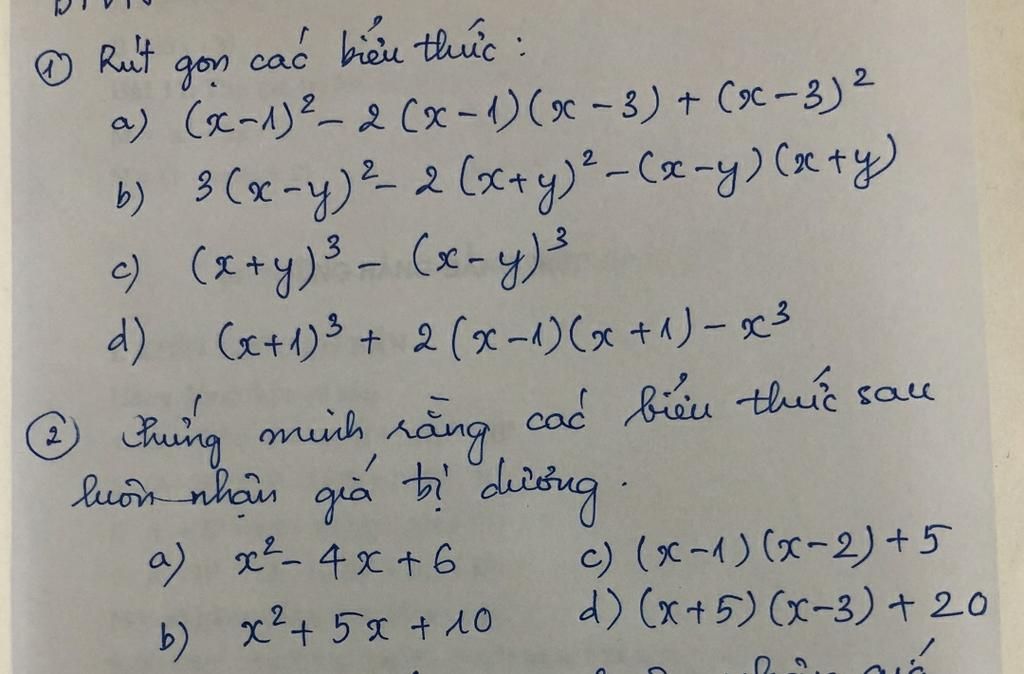 BTVN
① Rút gọn các biểu thức :
a) (x-1)² - 2(x-1)(x-3) + (x-3)²
b) 3(x-y)² - 2(x+y)² - (x-y)(x+y)
c) (x+y)³ - (x-y)³
d) (x+1)³ + 2(x-1)(x+1) - x³
② Chứng minh rằng các biểu thức sau
luôn nhận giá trị dương.
a) x² - 4x + 6 c) (x-1)(x-2) + 5
b) x² + 5x + 10 d) (x+5)(x-3) + 20
nhận giá